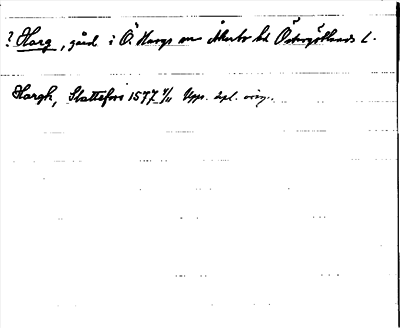 ? Harg, gård i Ö. Hargs sn Åkerbo hd Östergötlands l.
Hargh, Skattefors 1577 4/11 Upps. dpl. orig.